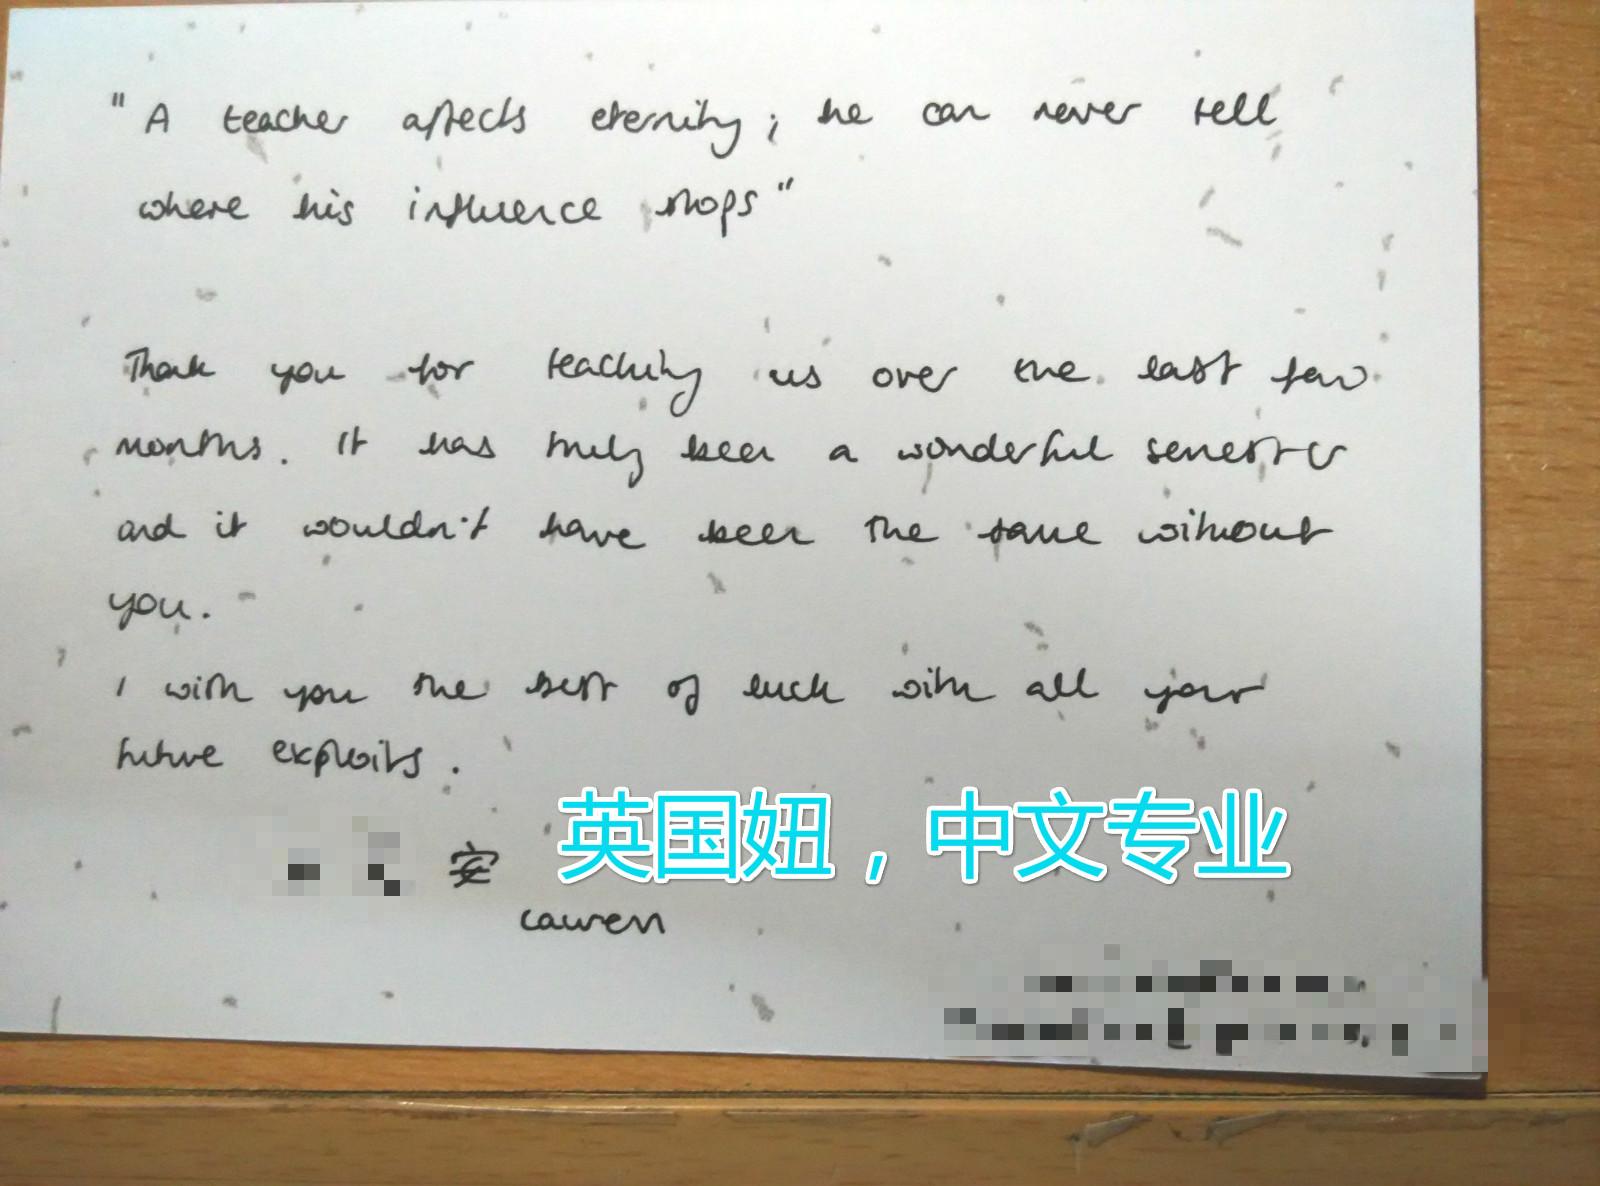 "A teacher affects eternity; he can never tell
where his influence stops"
Thank you for teaching us over the last few
months. It has truly been a wonderful semester
and it wouldn't have been the same without
you.
I wish you the best of luck with all your
future exploits.
安
英国妞，中文专业
Lauren